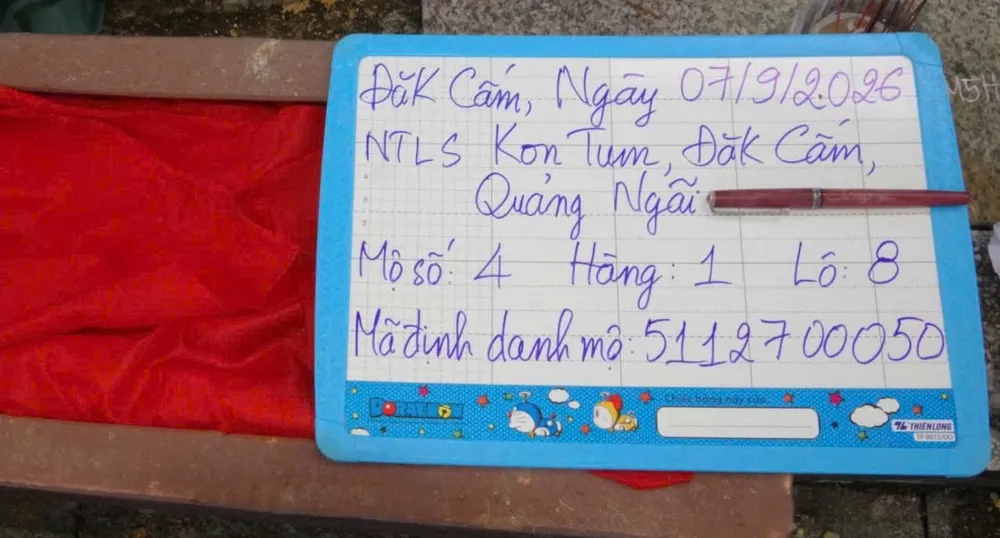 Đăk Cấm, Ngày 07/9/2026
NTLS Kon Tum, Đăk Cấm,
Quảng Ngãi
Mộ số: 4 Hàng: 1 Lô: 8
Mã định danh mộ: 5112700050
DORAEMON
Chiếc bảng này của
THIÊN LONG
M5H